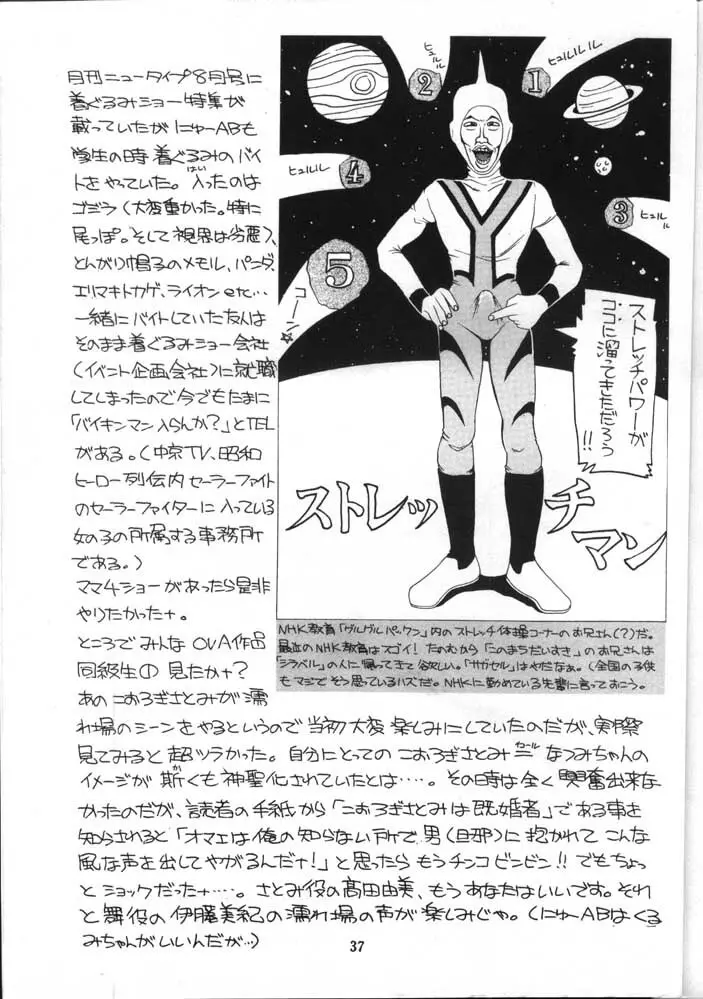 月刊ニュータイプ8月号に
着ぐるみショー特集が
載っていたがにゅーABも
学生の時着ぐるみのバイ
トをやっていた。入ったのは
はい
ゴジラ(大変重かった。特に
尾っぽ。そして視界は劣悪)、
とんがり帽子のメモル、パンダ、
エリマキトカゲ、ライオンetc…
一緒にバイトしていた友人は
そのまま着ぐるみショー会社
(イベント企画会社)に就職
してしまったので今でもたまに
「バイキンマン入らんか?」とTEL
がある。(中京TV、昭和
ヒーロー列伝内セーラーファイト
のセーラーファイターに入っている
女の子の所属する事務所
である。)
ママ4ショーがあったら是非
やりたかったナ。
ところでみんなOVA作品
同級生① 見たかナ?
あのこおろぎさとみが濡
れ場のシーンをやるというので当初大変楽しみにしていたのだが、実際
見てみると超ツラかった。自分にとってのこおろぎさとみ=なつみちゃんの
イメージが斯くも神聖化されていたとは‥‥。その時は全く興奮出来な
か
かったのだが、読者の手紙から「こおろぎさとみは既婚者」である事を
知らされると「オマエは俺の知らない所で男(旦那)に抱かれてこんな
風な声を出してやがるんだナ!」と思ったらもうチンコビンビン!!でもちょっ
とショックだったナ‥‥。さとみ役の高田由美、もうあなたはいいです。それ
と舞役の伊藤美紀の濡れ場の声が楽しみじゃ。(にゅーABはくる
みちゃんがいいんだが…)
ヒュルル
2
ヒュルルル
1
ヒュルルル
4
ヒュルル
3
5
コーン☆
ストレッチパワーが
ココに溜ってきただろう
!!
ストレッチ
マン
NHK教育「グルグルパックン」内のストレッチ体操コーナーのお兄さん(?)だ。
最近のNHK教育はスゴイ!たのむから「このまちだいすき」のお兄さんは
「シラベル」の人に帰ってきて欲しい。「サガセル」はやだなぁ。(全国の子供
もマジでそう思っているハズだ。NHKに勤めている先輩に言っておこう。
37